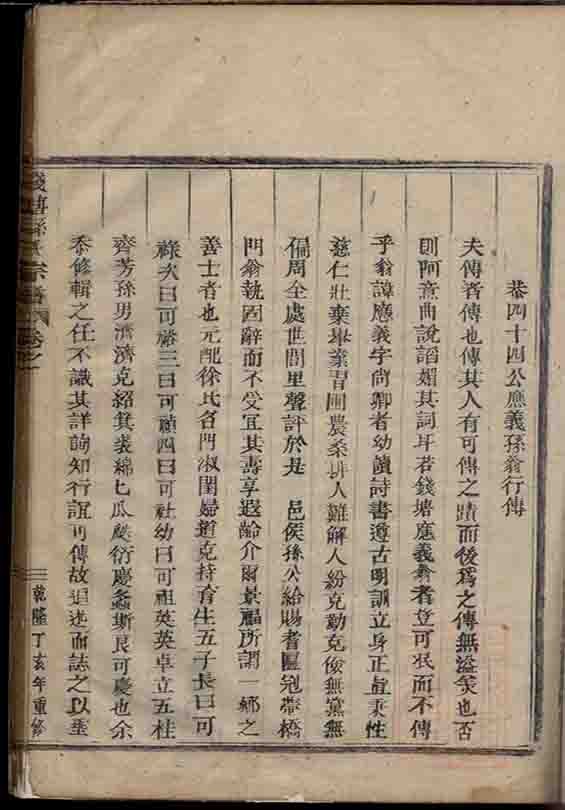 恭四十四公應義孫翁行傳
夫傳者傳也傳其人有可傳之蹟而後為之傳無溢美也否
則阿意曲說謟媚其詞耳若錢塘應義翁者豈可泯而不傳
乎翁諱應義字尚卿者幼讀詩書遵古明訓立身正直秉性
慈仁壯棄舉業習圃農桑排人難解人紛克勤克儉無黨無
偏周全處世閭里聲評於是 邑侯孫公給賜耆匾冠帶橋
門翁執固辭而不受宜其壽享遐齡介爾景福所謂一鄉之
善士者也元配徐氏名門淑閨婦道克持育生五子長曰可
祿次曰可裕三曰可禎四曰可社幼曰可祖英英卓立五桂
齊芳孫男濟濟克紹箕裘綿七瓜瓞衍慶螽斯良可慶也余
忝修輯之任不識其詳詢知行誼可傳故追述而誌之以垂
錢塘孫氏宗譜 卷之一
乾隆丁亥年重修